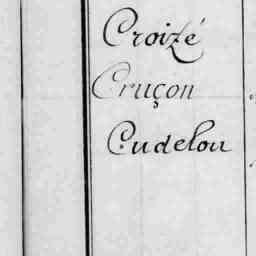 Croizé
Cruçon
Cudelou